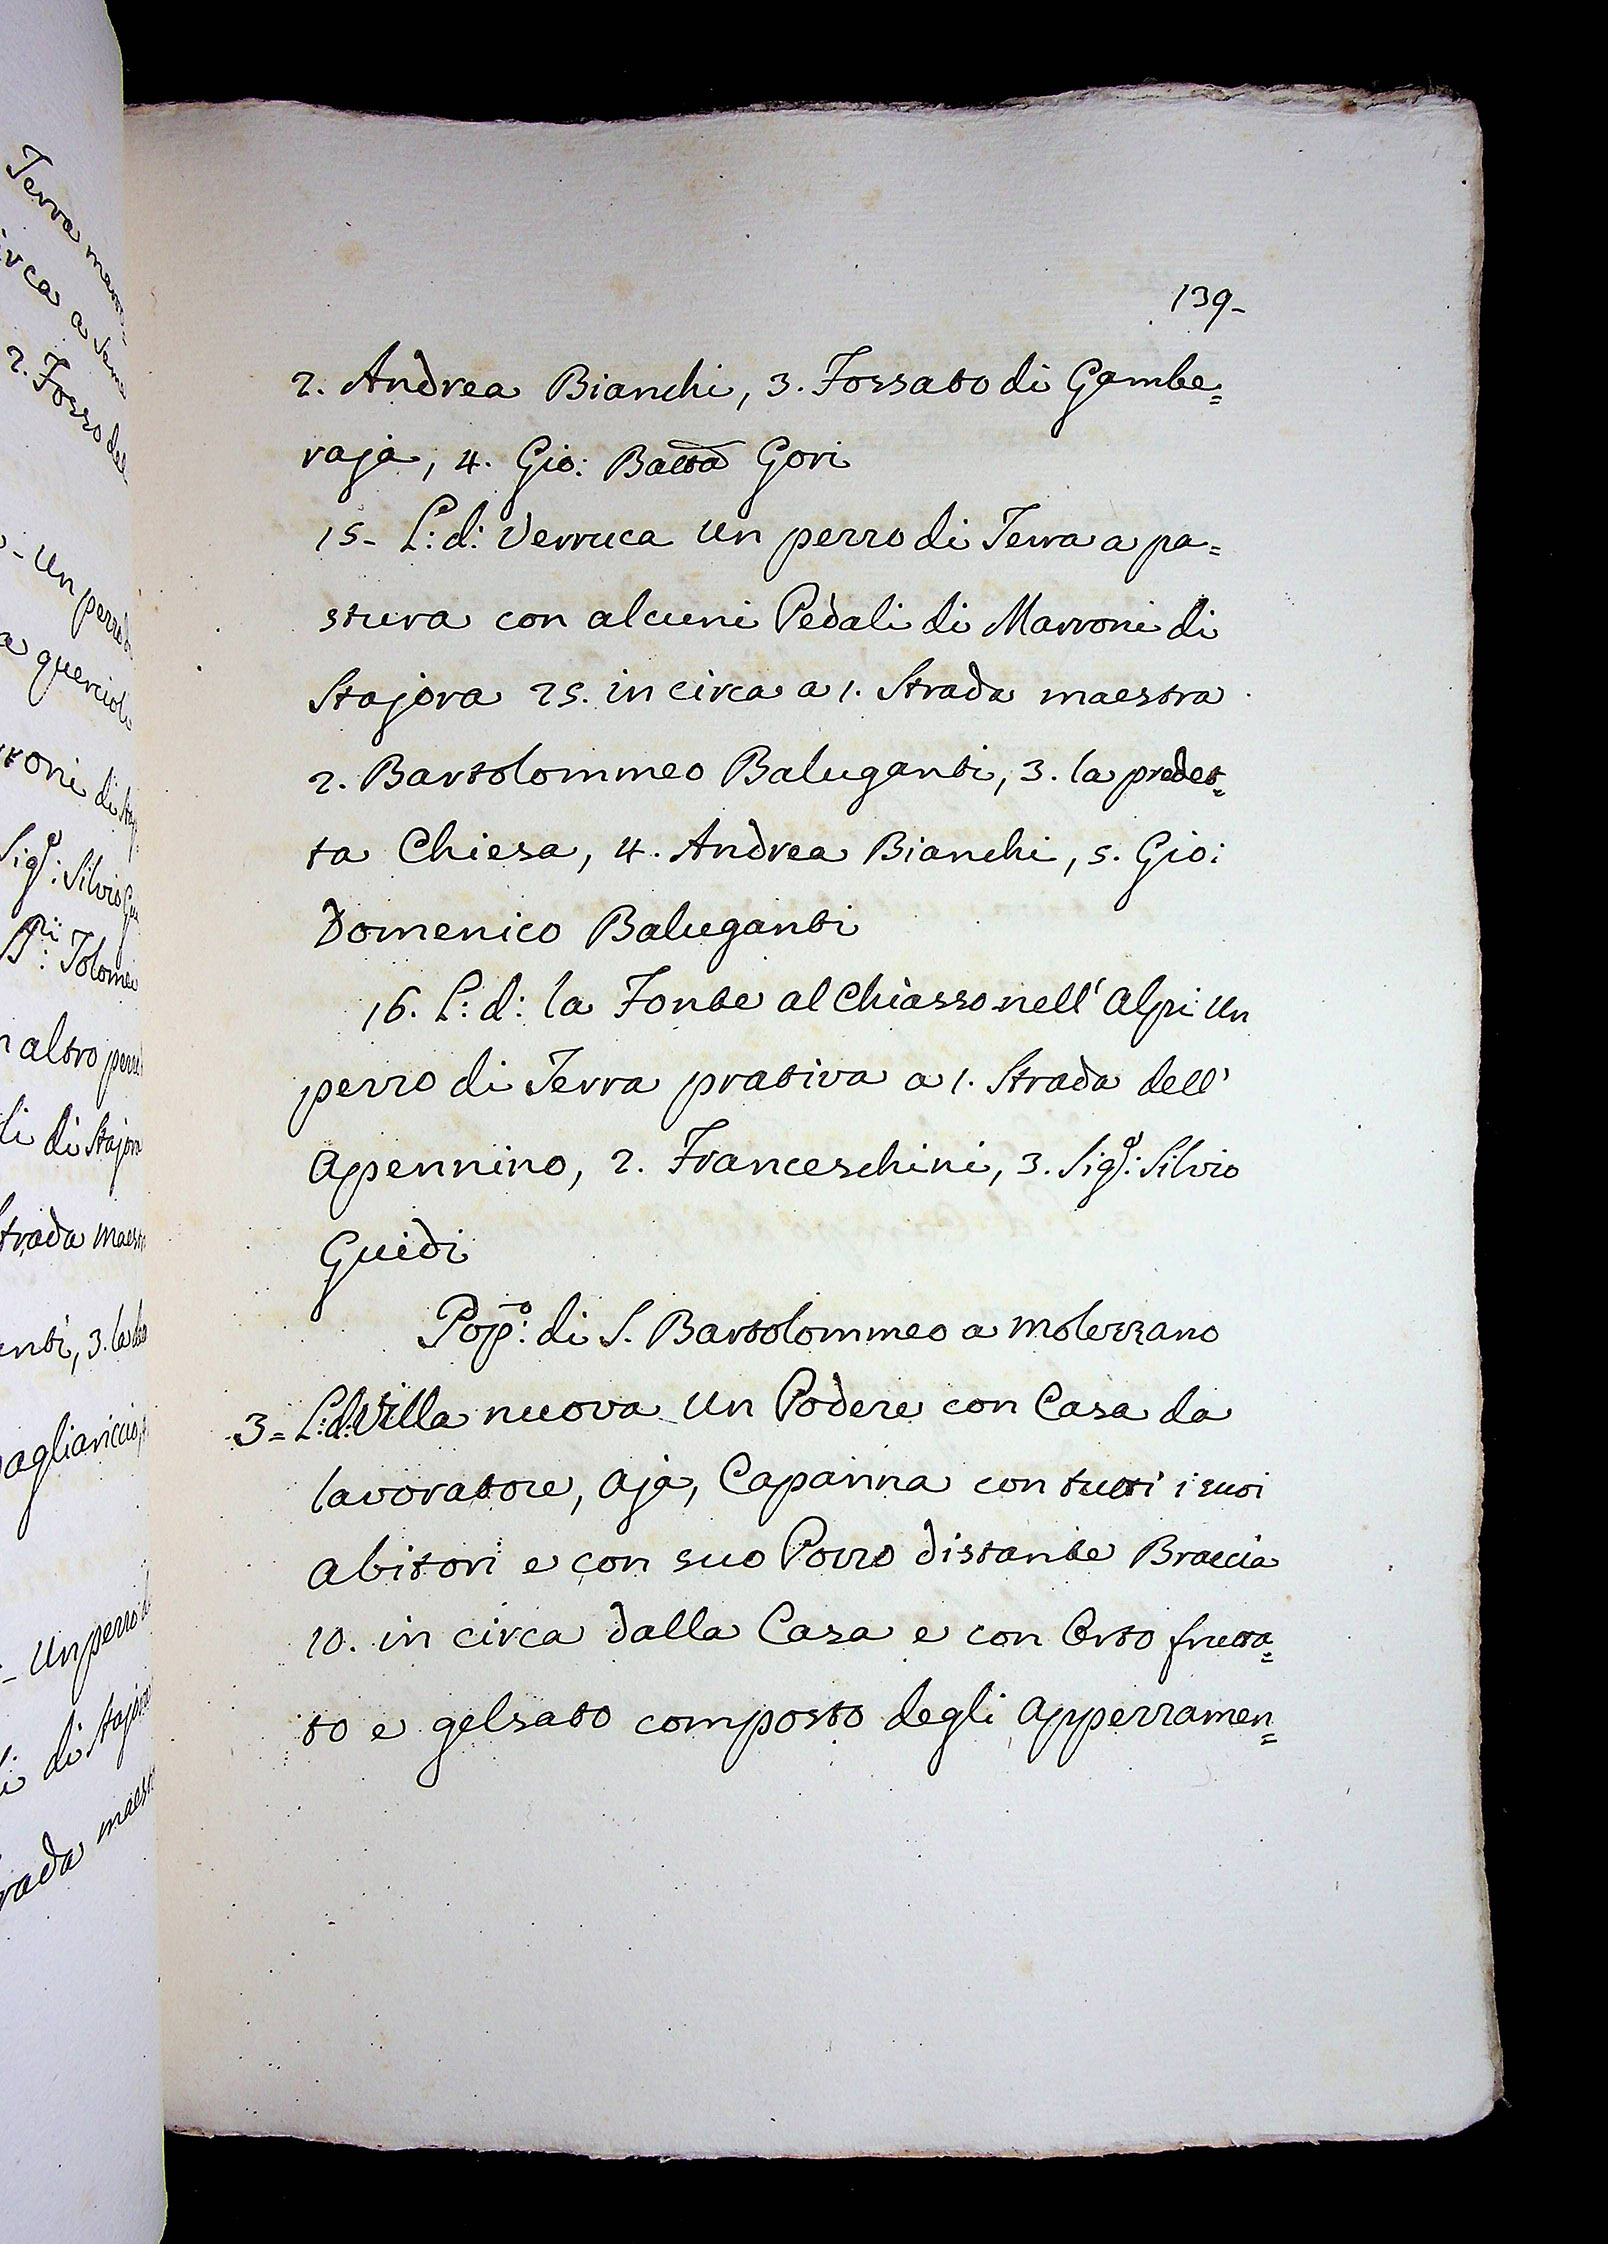 139-
2. Andrea Bianchi, 3. Fossato di Gambe=
raja, 4. Gio: Batta Gori
15- L: d: Verruca Un pezzo di Terra a pa=
stura con alcuni Pedali di Marroni di
Stajora 25. in circa a 1. Strada maestra
2. Bartolommeo Baluganti, 3. la predet=
ta Chiesa, 4. Andrea Bianchi, 5. Gio:
Domenico Baluganti
16. L: d: la Fonte al Chiasso nell' Alpi Un
pezzo di Terra prativa a 1. Strada dell'
Apennino, 2. Franceschini, 3. Sig.e: Silvio
Guidi
Pop.o: di S. Bartolommeo a Molezzano
3= L: d: Villa nuova Un Podere con Casa da
lavoratore, Aja, Capanna con tutti i suoi
Abitori e con suo Pozzo distante Braccia
10. in circa dalla Casa e con Orto frutta=
to e gelsato composto degli Appezzamen=
Terra
irca a
2. Fosso del
- Un
a
di
Silvio
Tolomei
altro
li di Stajora
Strada maest
3. la
Un pezzo
di Stajora
rada maest